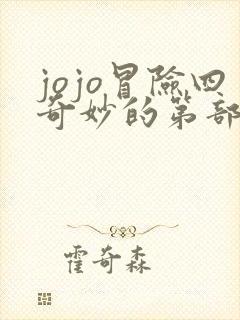 jojo冒險四
奇妙的第部
霍奇森